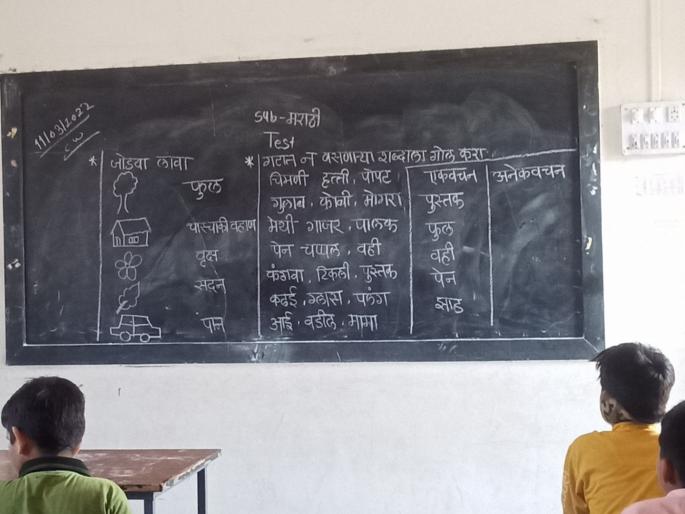 11/03/2022
CW
Sub-मराठी
Test
* जोडया लावा
फुल
चारचाकी वहाण
वृक्ष
सदन
पान
* गटात न बसणाऱ्या शब्दाला गोल करा
चिमणी हत्ती, पोपट
गुलाब, कोबी, मोगरा
मेथी गाजर, पालक
पेन चप्पल, वही
कंगवा, टिकली, पुस्तक
कढई, ग्लास, पलंग
आई, वडील, मामा
एकवचन अनेकवचन
पुस्तक
फुल
वही
पेन
झाड